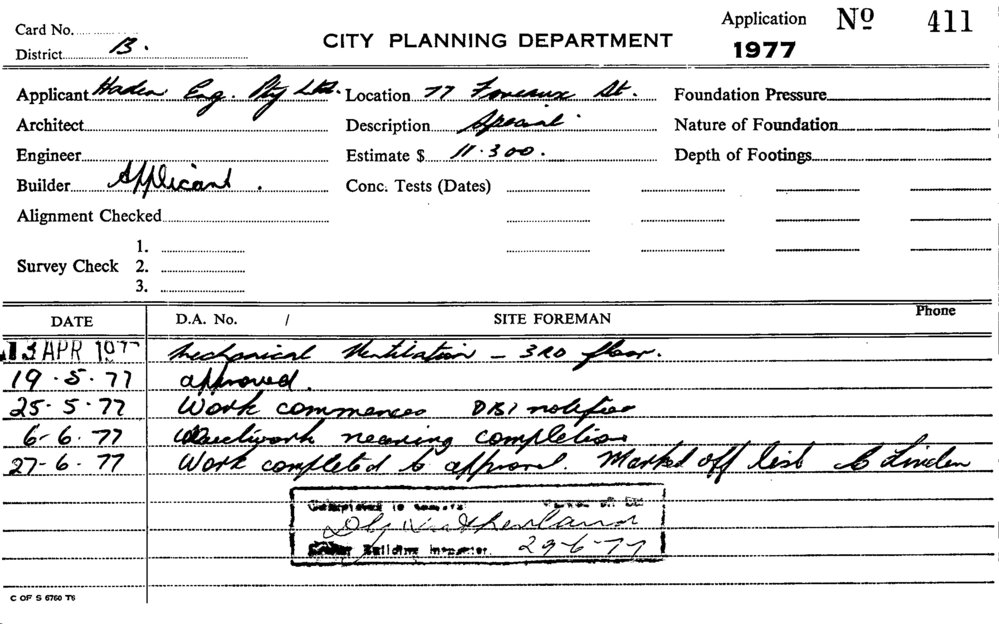 Card No.
District B.
CITY PLANNING DEPARTMENT
Application Nº 411
1977
Applicant Haden Eng. Pty Ltd. Location 77 Foveaux St. Foundation Pressure
Architect Description Special. Nature of Foundation
Engineer Estimate $ 11.300. Depth of Footings
Builder Applicant. Conc. Tests (Dates)
Alignment Checked
1.
Survey Check 2.
3.
DATE D.A. No. / SITE FOREMAN Phone
13 APR 1977 Mechanical Ventilation - 3RD floor.
19.5.77 approved.
25-5.77 Work commences DBI notified
6-6.77 Ductwork nearing completion
27-6.77 Work completed to approval. Marked off list
Building Inspector. 29-6-77
C OF S 6760 T6